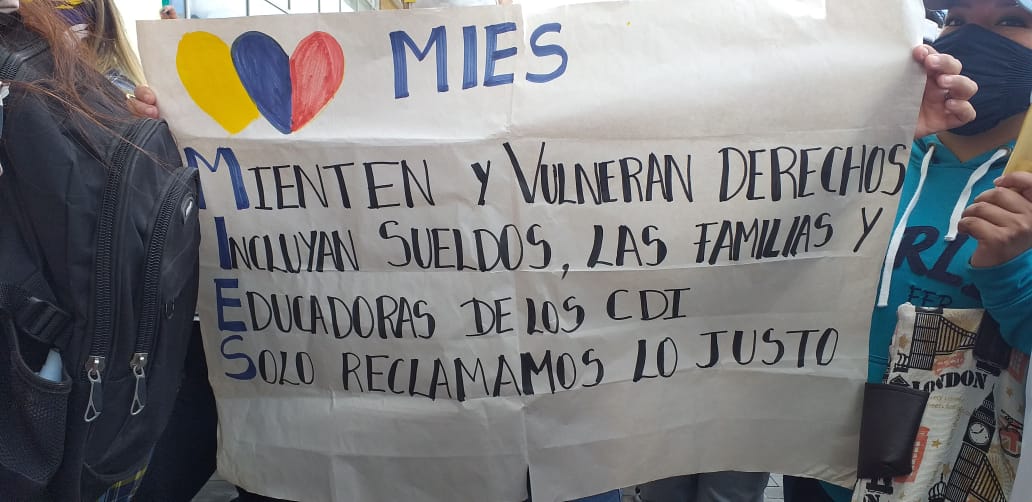 MIES
MIENTEN Y VULNERAN DERECHOS
INCLUYAN SUELDOS, LAS FAMILIAS Y
EDUCADORAS DE LOS CDI
SOLO RECLAMAMOS LO JUSTO
LONDON